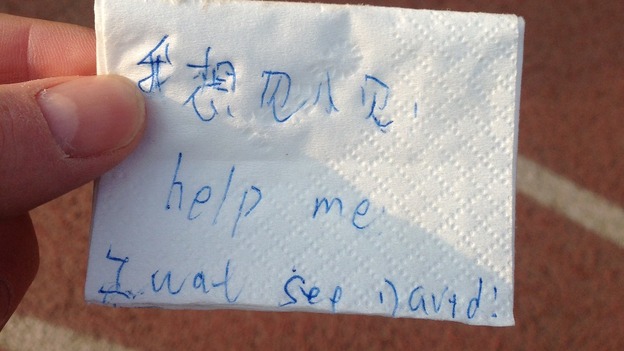 我想见小见!
help me
I wat see David!